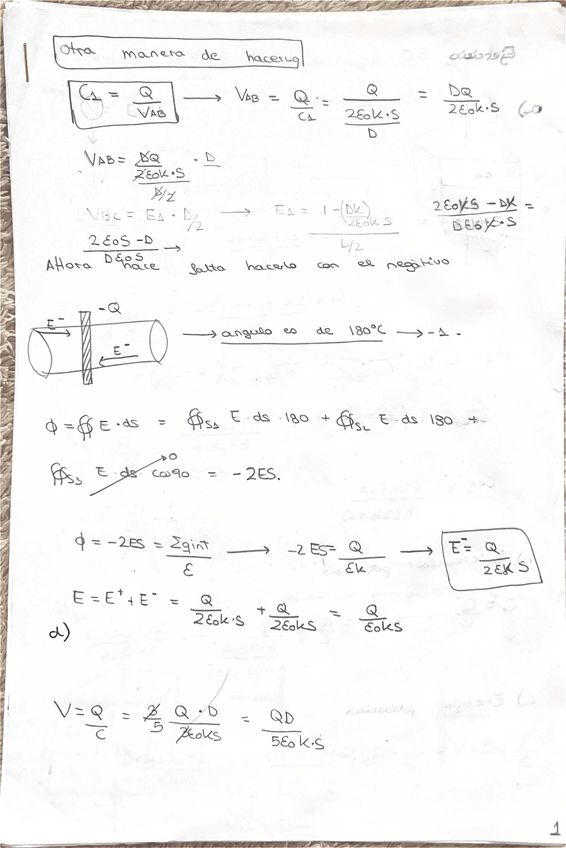 Otra manera de hacerlo
C₁ = Q/V_AB → V_AB = Q/C₁ = Q/(2ε₀k·S/D) = DQ/(2ε₀k·S)
V_AB = (DQ/(2ε₀k·S))/(D/2) · D
V_BC = E₁ · D/2 → E₁ = (1-(Dk)/(2ε₀kS))/(D/2) = (2ε₀kS - Dk)/(Dε₀k·S) =
(2ε₀S - D)/(Dε₀S) →
Ahora hace falta hacerlo con el negativo
-Q
E⁻
E⁻
→ angulo es de 180°C → -1.
ϕ = ∯ E·ds = ∯s₁ E·ds·180 + ∯s₂ E·ds 180 +
∯s₃ E·ds cos90 → 0 = -2ES.
ϕ = -2ES = Σqint/ε → -2ES = Q/εk → E⁻ = Q/(2εkS)
E = E⁺ + E⁻ = Q/(2ε₀k·S) + Q/(2ε₀kS) = Q/(ε₀kS)
d)
V = Q/C = 2/5 Q·D/(2ε₀kS) = QD/(5ε₀k·S)
1